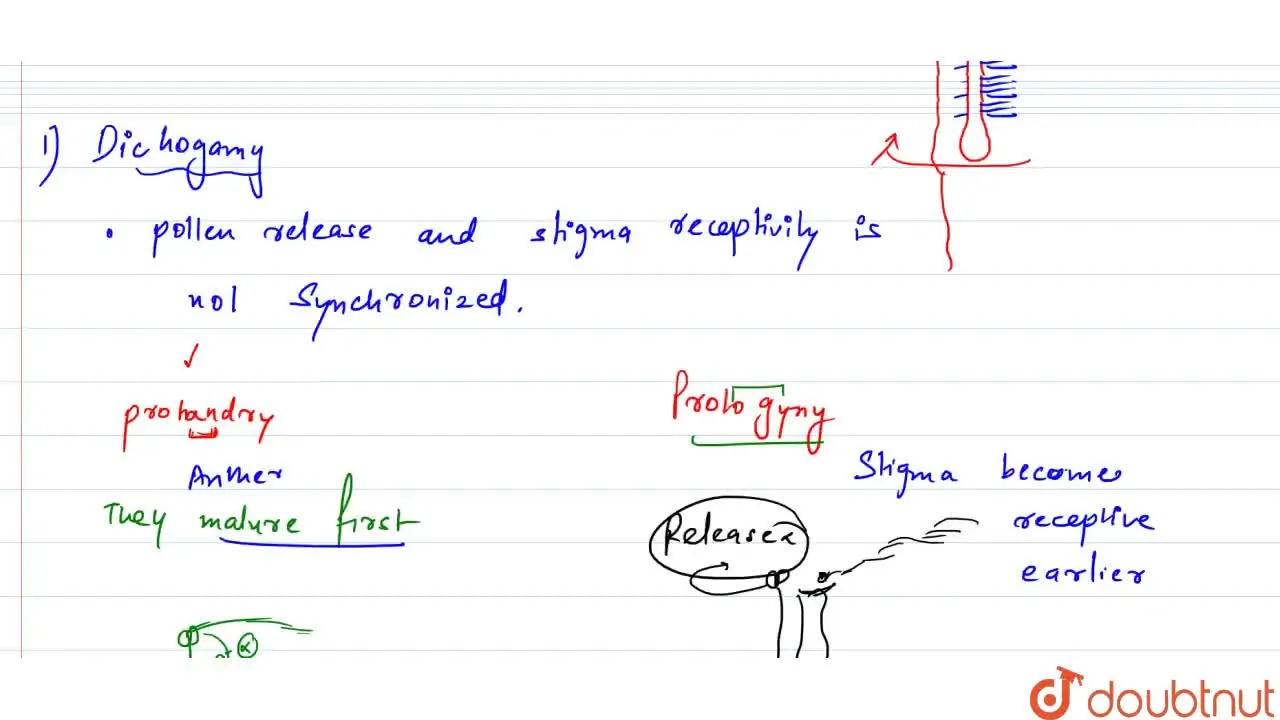 1) Dichogamy
• pollen release and stigma receptivity is
not synchronized.
protandry
Anther
They mature first
Protogyny
Stigma become
receptive
earlier
Release x
x
doubtnut